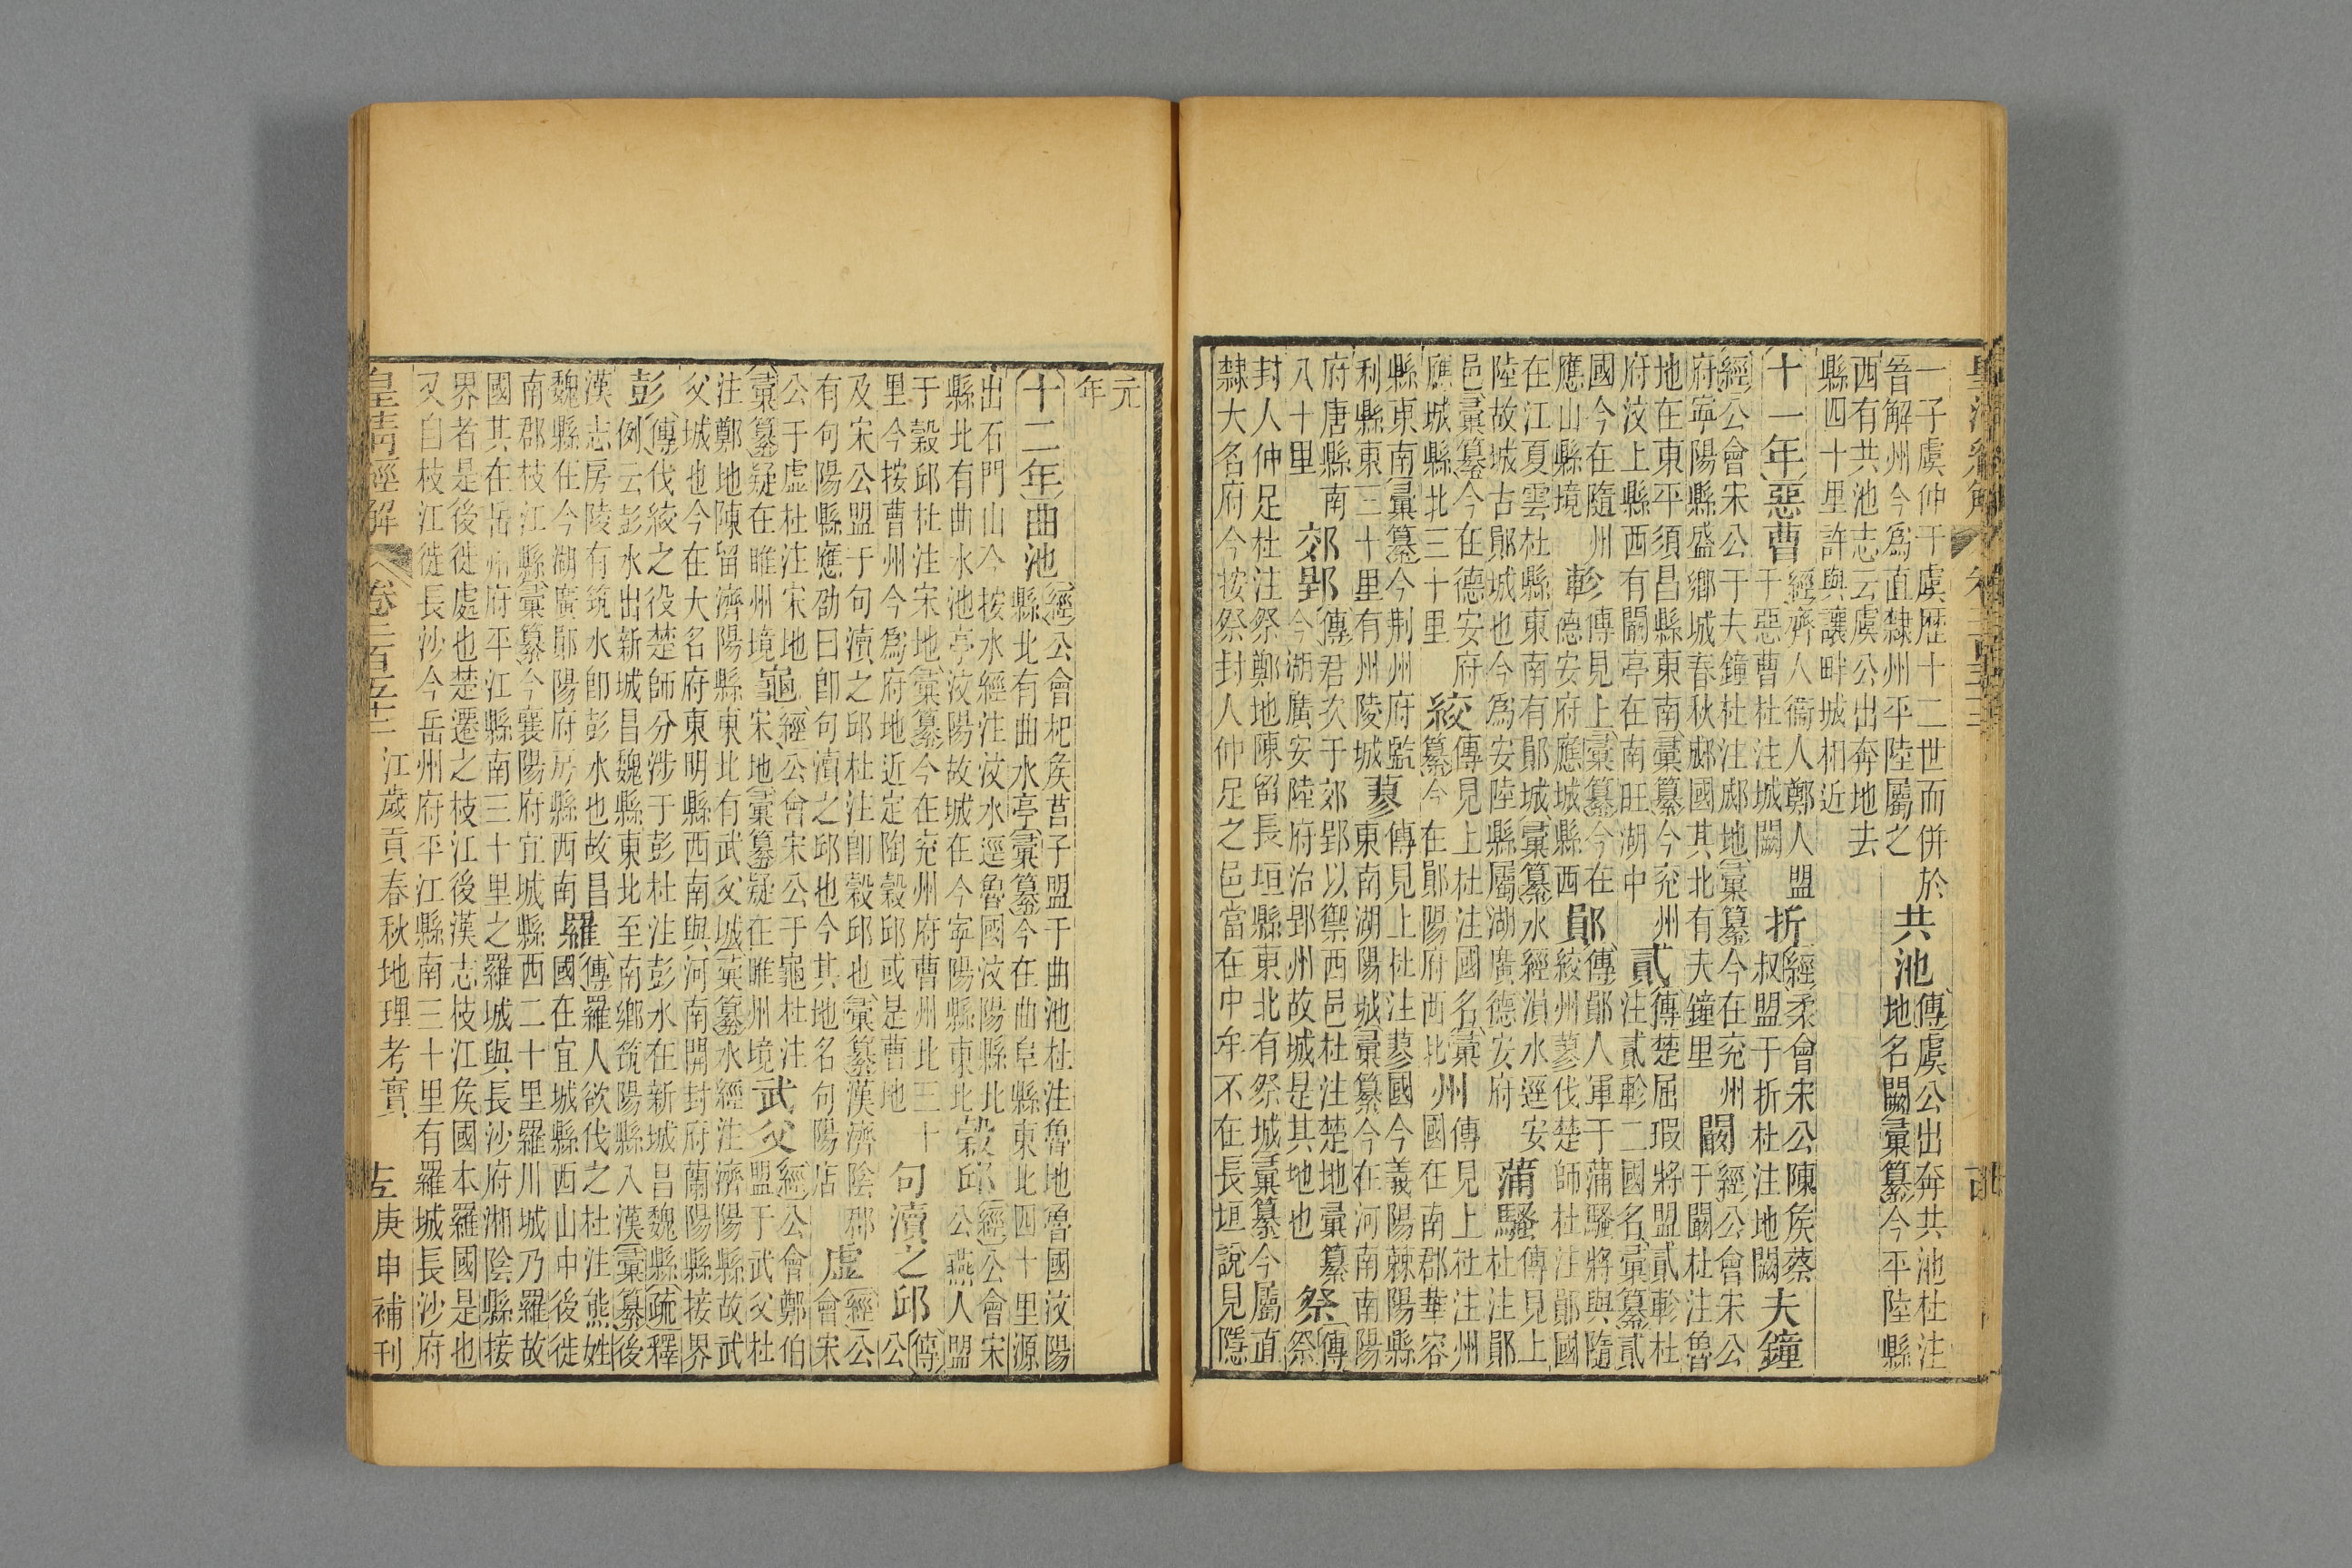 皇清經解 卷二百五十二
一子虞仲于虞歷十二世而併於
晉解州今爲直隸州平陸屬之
共池
傳虞公出奔共池杜注
地名闕彙纂今平陸縣
西有共池志云虞公出奔地去
縣四十里許與讓畔城相近
十一年
惡曹
經齊人衞人鄭人盟
于惡曹杜注城闕
折
經柔會宋公陳矦蔡
叔盟于折杜注地闕
夫鐘
經公會宋公于夫鐘杜注郕地彙纂今在兗州
府寧陽縣盛鄉城春秋郕國其北有夫鐘里
闞
經公會宋公
于闞杜注魯
地在東平須昌縣東南彙纂今兗州
府汶上縣西有闞亭在南旺湖中
貳
傳楚屈瑕將盟貳軫杜
注貳軫二國名彙纂貳
國今在隨州
應山縣境
軫
傳見上彙纂今在
德安府應城縣西
鄖
傳鄖人軍于蒲騷將與隨
絞州蓼伐楚師杜注鄖國
在江夏雲杜縣東南有鄖城彙纂水經溳水逕安
陸故城古鄖城也今爲安陸縣屬湖廣德安府
蒲騷
傳見上
杜注鄖
邑彙纂今在德安府
應城縣北三十里
絞
傳見上杜注國名彙
纂今在鄖陽府西北
州
傳見上杜注州
國在南郡華容
縣東南彙纂今荆州府監
利縣東三十里有州陵城
蓼
傳見上杜注蓼國今義陽棘陽縣
東南湖陽城彙纂今在河南南陽
府唐縣南
八十里
郊郢
傳君次于郊郢以禦西邑杜注楚地彙纂
今湖廣安陸府治郢州故城是其地也
祭
傳
祭
封人仲足杜注祭鄭地陳留長垣縣東北有祭城彙纂今屬直
隸大名府今按祭封人仲足之邑當在中牟不在長垣說見隱
元
年
十二年
曲池
經公會杞矦莒子盟于曲池杜注魯地魯國汶陽
縣北有曲水亭彙纂今在曲阜縣東北四十里源
出石門山今按水經注汶水逕魯國汶陽縣北
縣北有曲水池亭汶陽故城在今寧陽縣東北
穀邱
經公會宋
公燕人盟
于穀邱杜注宋地彙纂今在兗州府曹州北三十
里今按曹州今爲府地近定陶穀邱或是曹地
句瀆之邱
傳
公
及宋公盟于句瀆之邱杜注卽穀邱也彙纂漢濟陰郡
有句陽縣應劭曰卽句瀆之邱也今其地名句陽店
虛
經公
會宋
公于虛杜注宋地
彙纂疑在睢州境
龜
經公會宋公于龜杜注
宋地彙纂疑在睢州境
武父
經公會鄭伯
盟于武父杜
注鄭地陳留濟陽縣東北有武父城彙纂水經注濟陽縣故武
父城也今在大名府東明縣西南與河南開封府蘭陽縣接界
彭
傳伐絞之役楚師分涉于彭杜注彭水在新城昌魏縣疏釋
例云彭水出新城昌魏縣東北至南鄉筑陽縣入漢彙纂後
漢志房陵有筑水卽彭水也故昌
魏縣在今湖廣鄖陽府房縣西南
羅
傳羅人欲伐之杜注熊姓
國在宜城縣西山中後徙
南郡枝江縣彙纂今襄陽府宜城縣西二十里羅川城乃羅故
國其在岳州府平江縣南三十里之羅城與長沙府湘陰縣接
界者是後徙處也楚遷之枝江後漢志枝江矦國本羅國是也
又自枝江徙長沙今岳州府平江縣南三十里有羅城長沙府
皇清經解 卷二百五十二 江歲貢春秋地理考實 左 庚申補刊